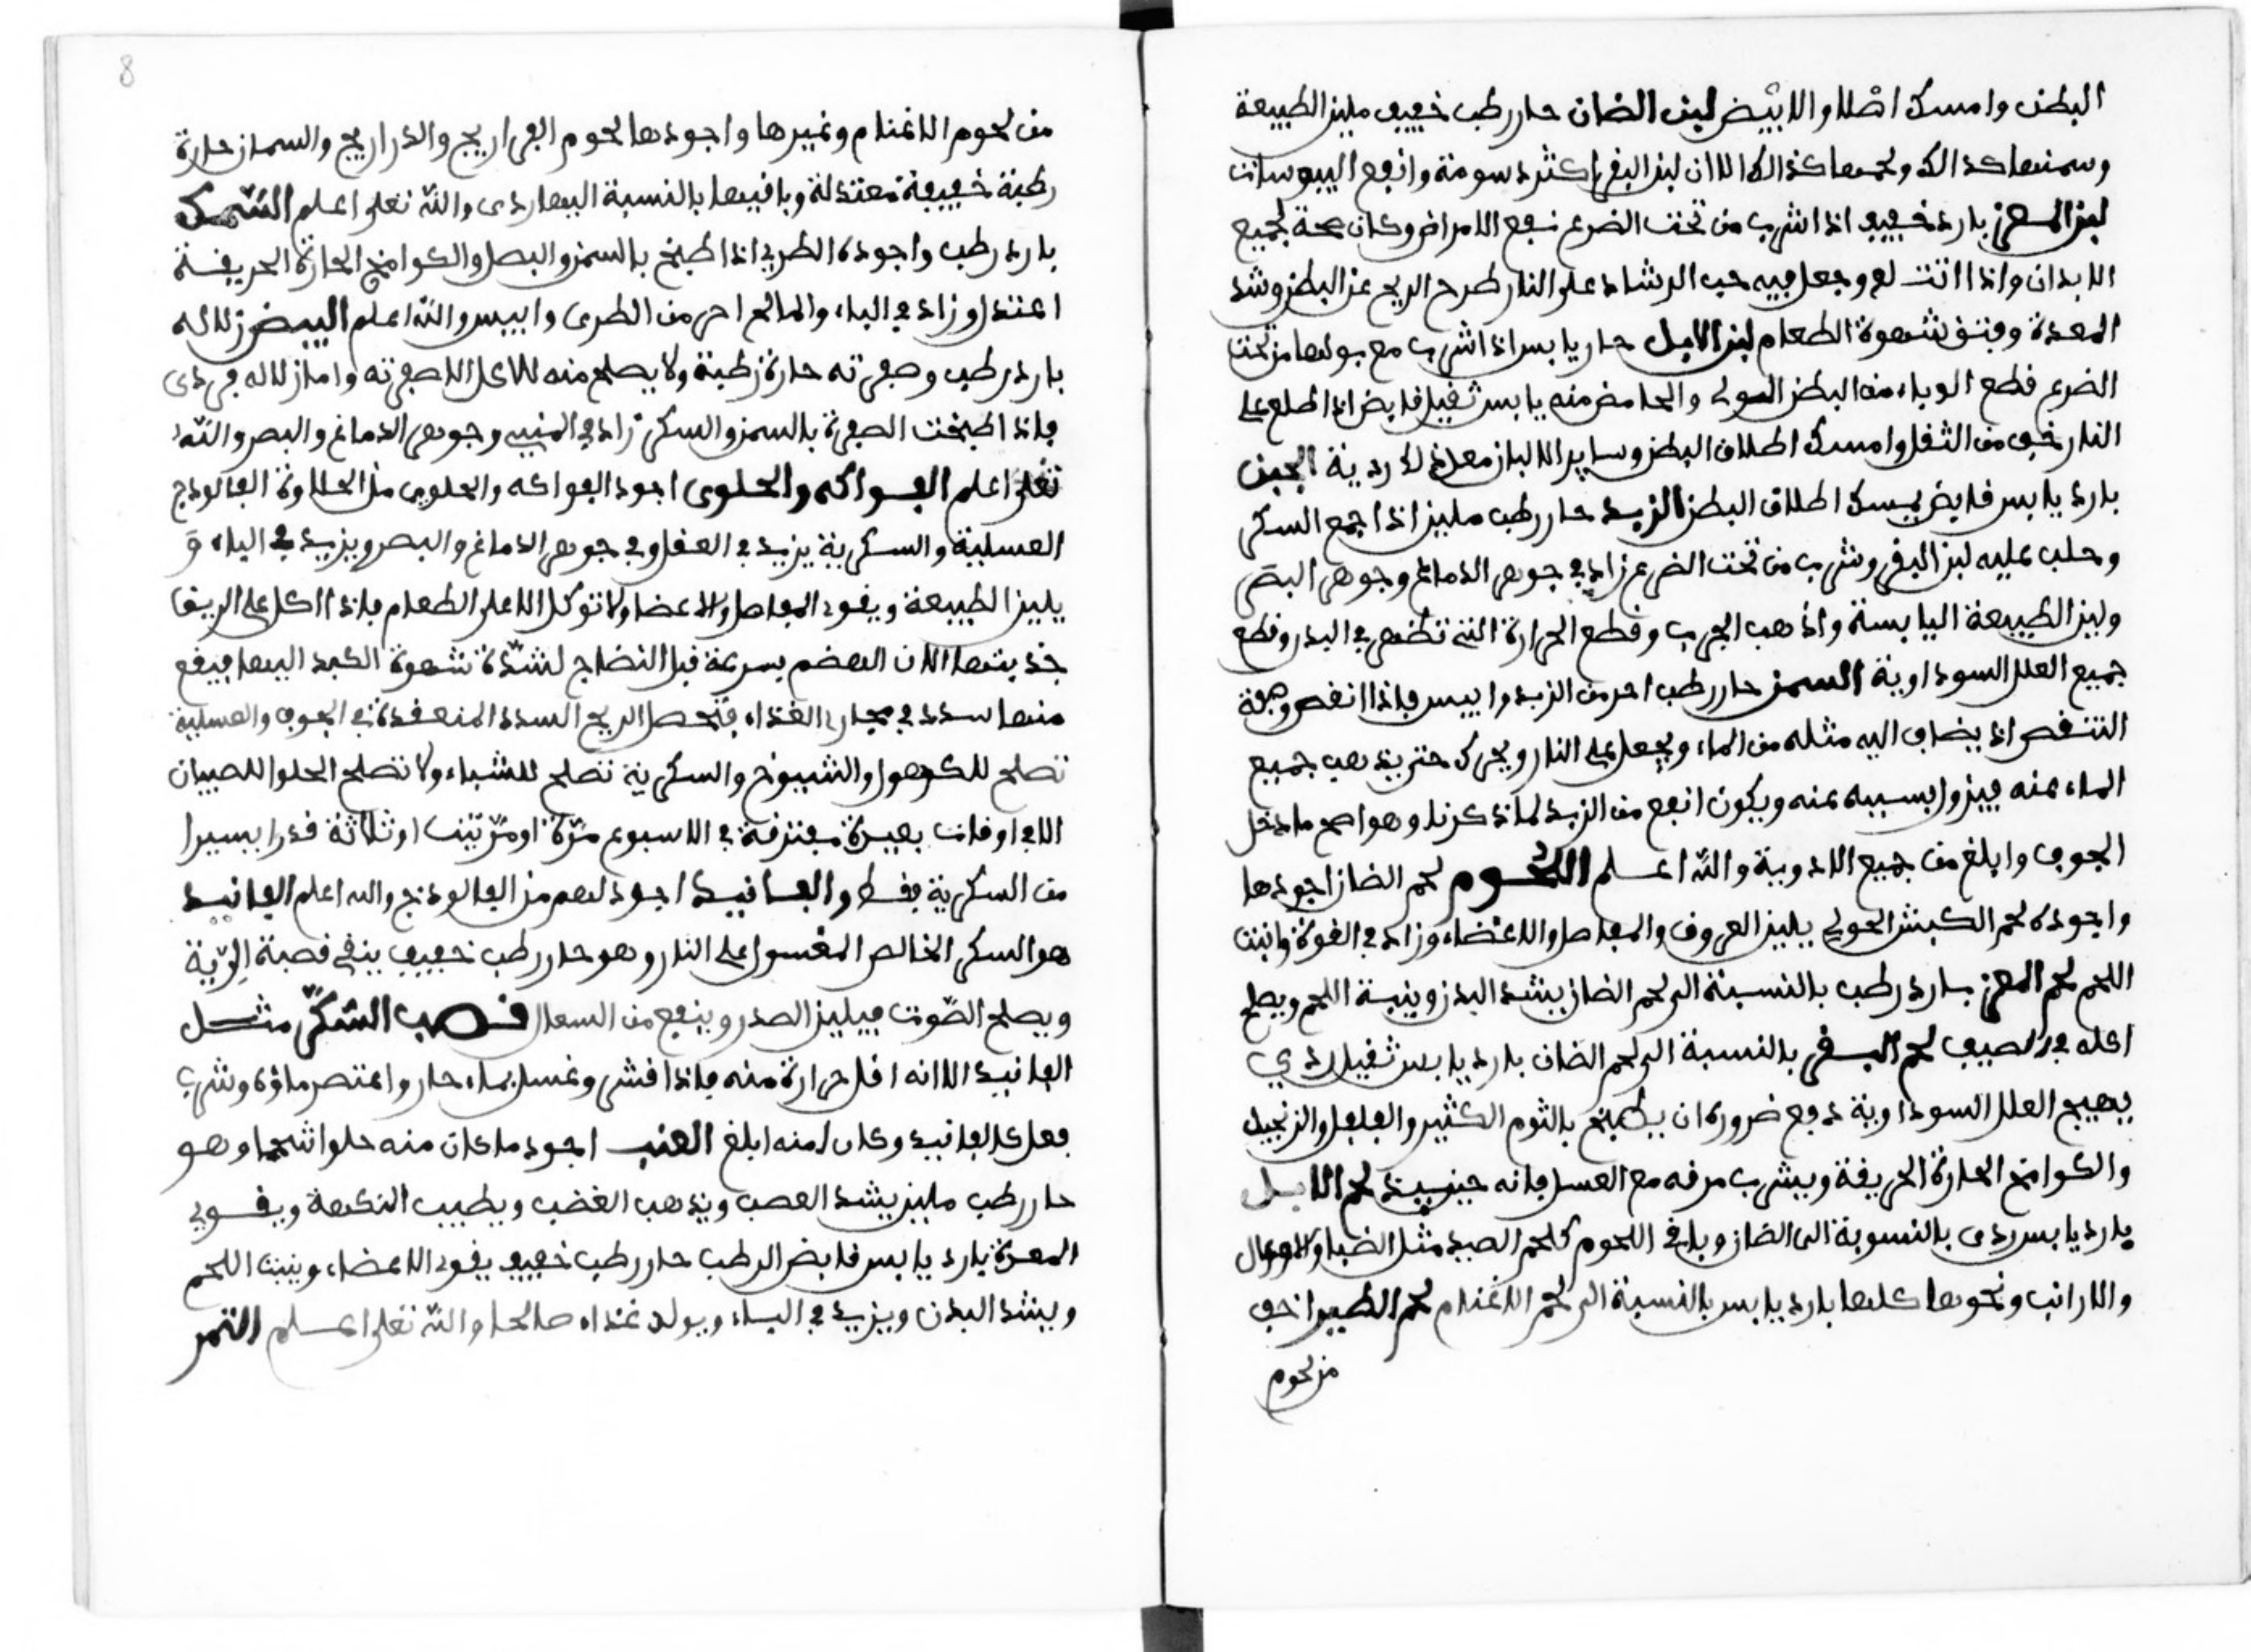 البطن وامسك اطلاق الابيض لبن الضان حار رطب خفيف ملين الطبيعة
وسمنها كذالك ولحمها كذالك الا ان لبن البقر اكثر دسومة وانفع اليبوسات
لبن المعز بارد خفيف اذا شرب من تحت الضرع نفع الامراض وكان صحة لجميع
الابدان واذا وجعل فيه حب الرشاد على النار طرح الريح عن البطن وشد
المعدة وفتق شهوة الطعام لبن الابل حار يابس اذا شرب مع بولها من تحت
الضرع قطع الوباء من البطن والحامض منه يابس ثقيل قابض اذا طلع على
النار خف من الثقل وامسك اطلاق البطن وساير الالبان ردية الجبن
بارد يابس قابض يمسك اطلاق البطن الزبد حار رطب ملين اذا جمع السكر
وحلب عليه لبن البقر وشرب من تحت الضرع زاد في جوهر الدماغ وجوهر البصر
ولين الطبيعة اليابسة واذهب الجرب وقطع الحرارة التي تظهر في البدن وقطع
جميع العلل السوداوية السمن حار رطب احر من الزبد وايبس فاذا انقص وصفة
التنقص ان يضاف اليه مثله من الماء ويجعل على النار ويحرك حتى يذهب جميع
الماء عنه فيزول يبسه عنه ويكون انفع من الزبد لما ذكرنا وهو اصح ما دخل
الجوف وابلغ من جميع الادوية والله اعلم اللحوم لحم الضان اجودها
واجوده لحم الكبش الحولي يلين العروق والمفاصل والاعضاء وزاد في القوة وانبت
اللحم لحم المعز بارد رطب بالنسبة الى لحم الضان يشد البدن وينبت اللحم ويصلح
اكله في الصيف لحم البقر بالنسبة الى لحم الضان بارد يابس ثقيل ردي
يهيج العلل السوداوية دفع ضروره ان يطبخ بالثوم الكثير والفلفل والزنجبيل
والكوامخ الحارة الحريفة ويشرب مرقه مع العسل فانه حينيذ لحم الابل
بارد يابس ردى بالنسوبة الى الضان وباقي اللحوم كلحم الصيد مثل الضبا والاوعال
والارانب ونحوها كلها بارد يابس بالنسبة الى لحم الاغنام لحم الطير اخف
من لحوم
8
من لحوم الاغنام وغيرها واجودها لحوم الفراريج والدراريج والسمان حارة
رطبة خفيفة معتدلة وباقيها بالنسبة اليها ردى والله تعلى اعلم السّمك
بارد رطب واجوده الطري اذا طبخ بالسمن والبصل والكوامخ الحارة الحريفة
اعتدل وزاد في الباء والمالح احر من الطرى وايبس والله اعلم البيض زلاله
بارد رطب وصفرته حارة رطبة ولا يصلح منه للاكل الا صفرته واما زلاله فردى
فاذا طبخت الصفرة بالسمن والسكر زاد في المني وجوهر الدماغ والبصر والله
تعلى اعلم الفواكه والحلوى اجود الفواكه والحلوى من الحلاوة الفالوذج
العسلية والسكرية يزيد في العقل وفي جوهر الدماغ والبصر ويزيد في الباء و
يلين الطبيعة ويقود المفاصل والاعضا ولا توكل الا على الطعام فاذا اكل على الريق
جذبتها الان الهضم بسرعة قبل النضاج لشدّة شهوة الكبد اليها فيقع
منها سدد في مجاري الغذاء فتحصل الريح السدد المنعقدة في الجوف والعسلية
تصلح للكهول والشيوخ والسكرية تصلح للشباء ولا تصلح الحلوا للصبيان
الا في اوقات بعيدة مفترقة في الاسبوع مرّة او مرّتين او ثلاثة قدرا يسيرا
من السكرية فقط والفانيد اجود لهم من الفالوذج والله اعلم الفانيد
هو السكر الخالص المغسول على النار وهو حار رطب خفيف ينقي قصبة الريّة
ويصلح الصّوت فيلين الصدر وينفع من السعال قصب السّكّر مثل
الفانيد الا انه اقل حرارة منه فاذا قشر وغسل بماء حار واعتصر ماؤه وشرب
فعل كالفانيد وكان منه ابلغ العنب اجود ما كان منه حلوا شحما وهو
حار رطب ملين يشد العصب ويذهب الغضب ويطيب النكهة ويقوي
المعدة يارد يابس قابض الرطب حار رطب خفيف يقود الاعضاء وينبت اللحم
ويشد البدن ويزيد في الباء ويولد غذاء صالحا والله تعلى اعلم التمر